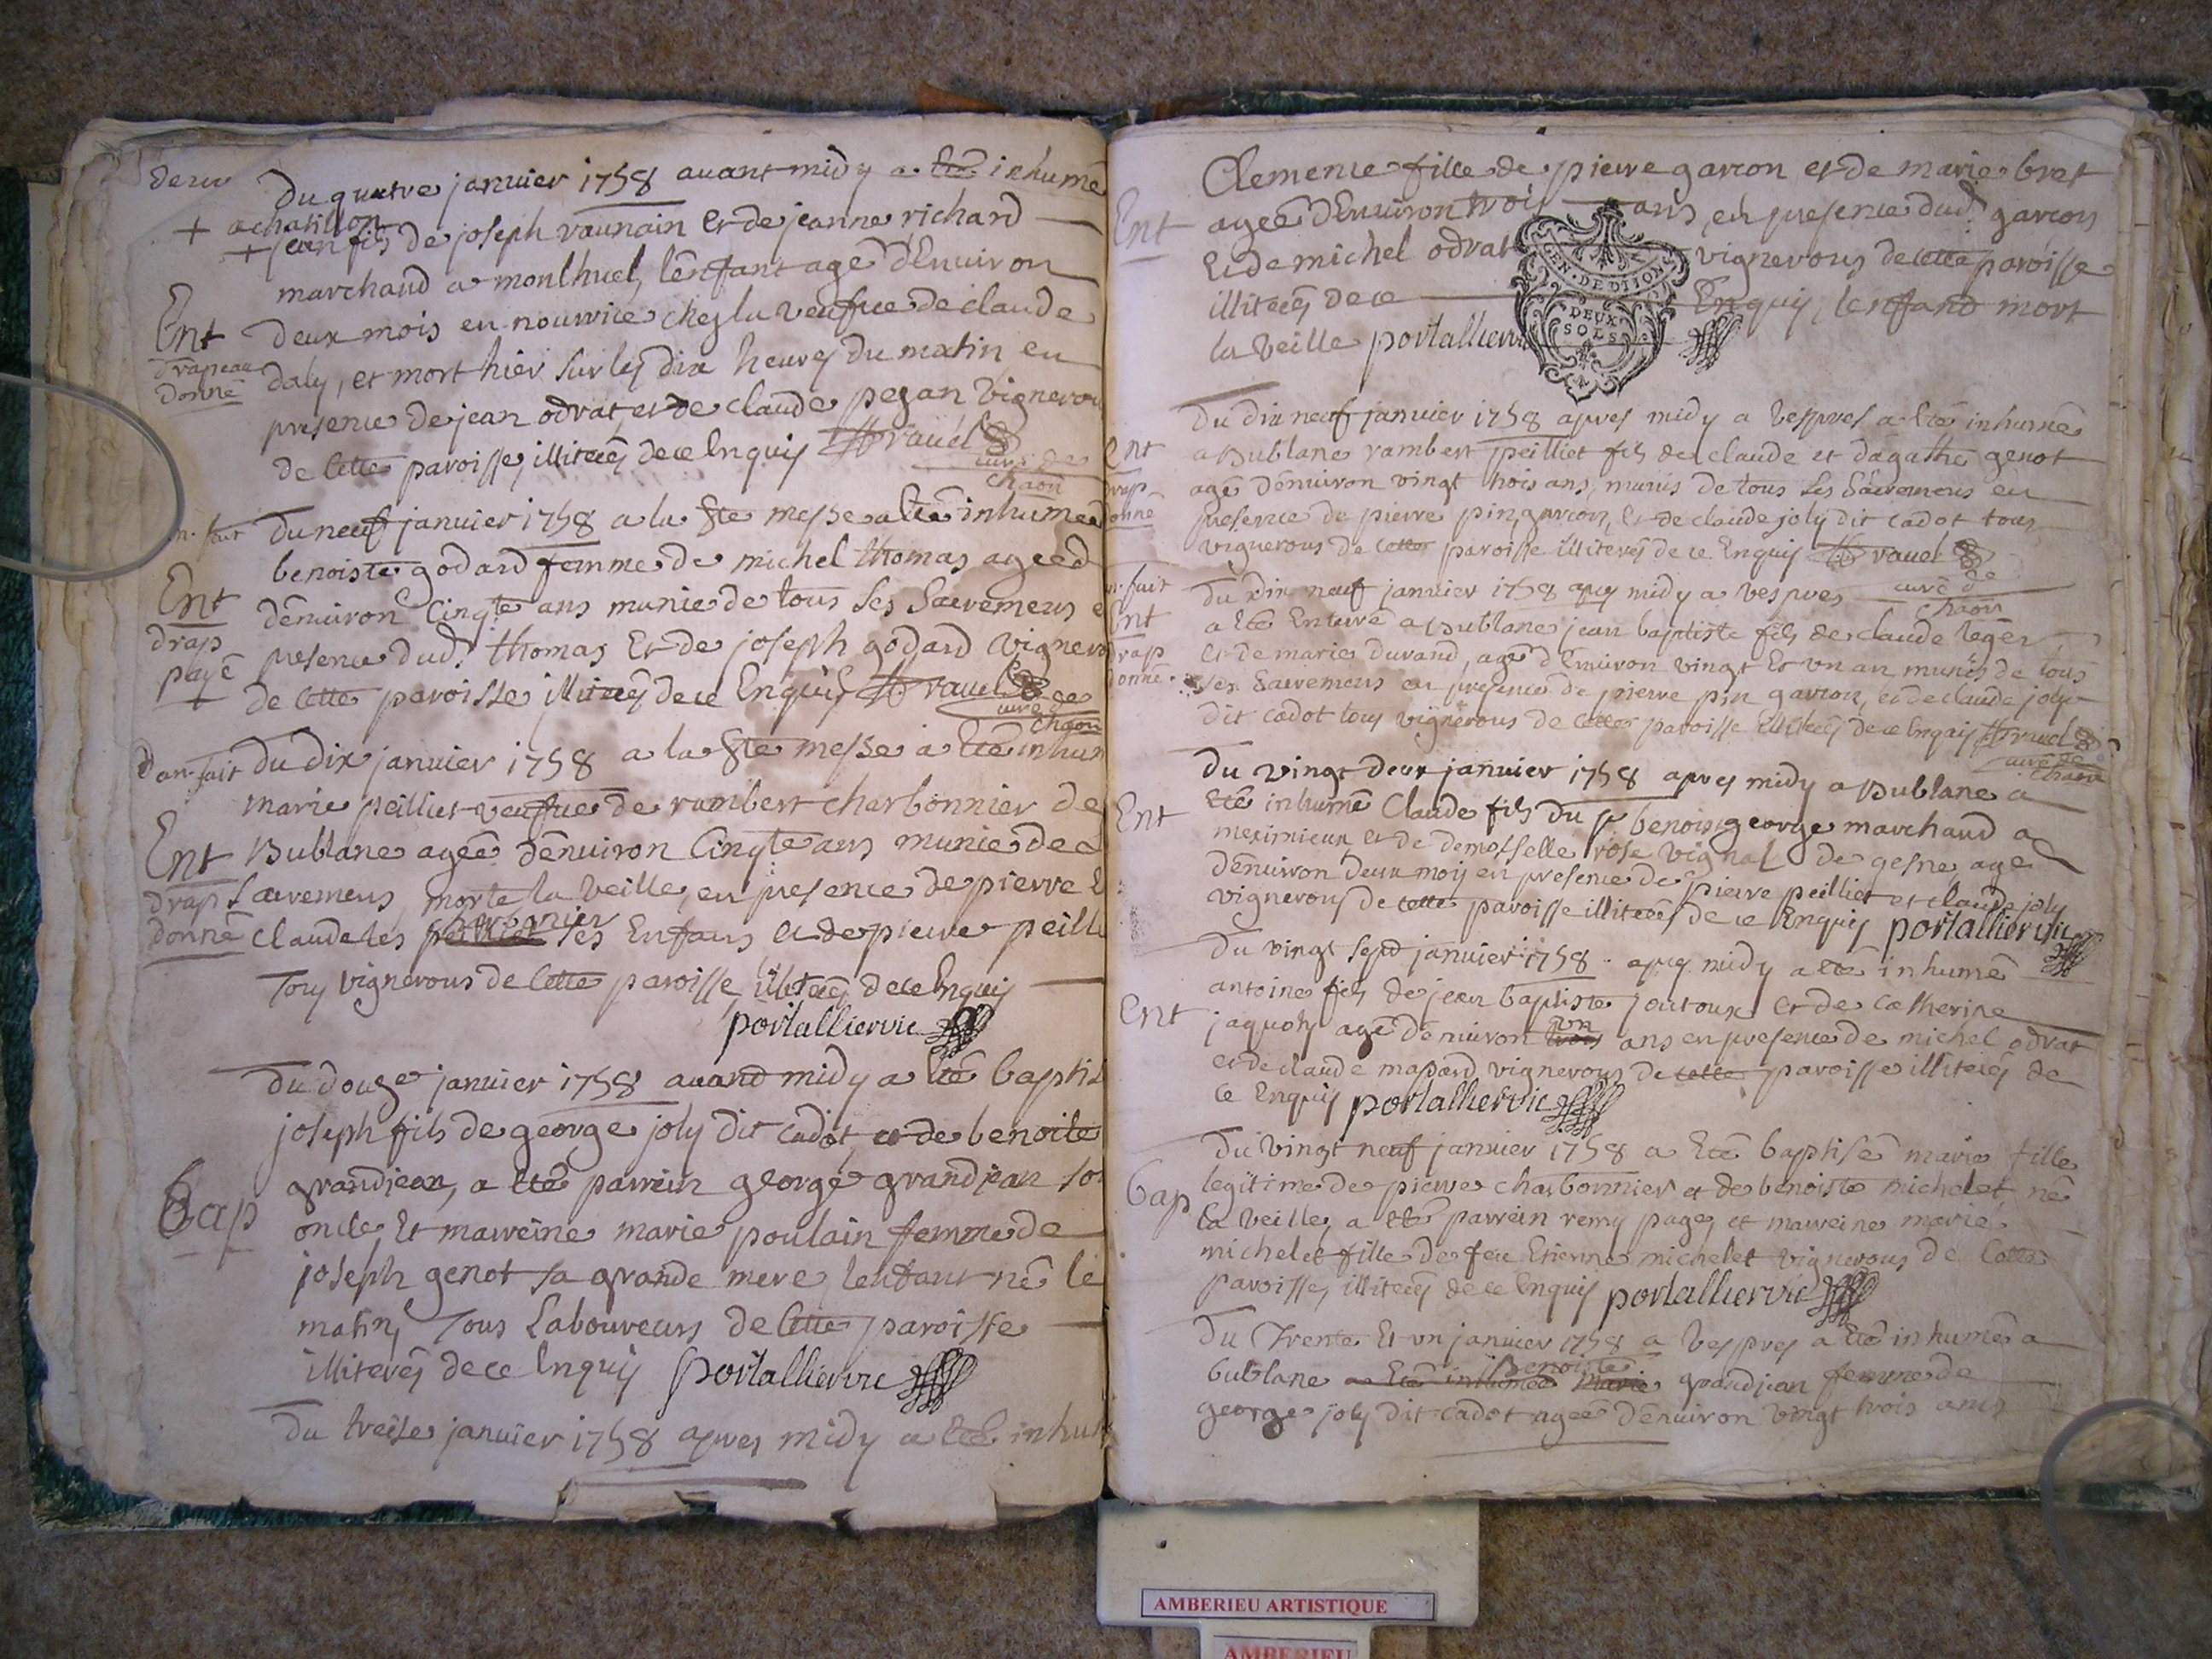 Du quatre janvier 1758 avant midy a eté inhumé
+ a chatillon
+ jean fils de joseph vaunain et de jeanne richard
marchand a monlhuel, l'enfant agé d'environ
Ent
deux mois en nourrice chez la veufve de claude
drapeau
donné
daly, et mort hier sur les dix heures du matin en
presence de jean odrat, et de claude pegan vigneron
de cette paroisse, illiterés de ce enquis ravel
curé de
chaon
Du neuf janvier 1758 a la Ste messe a eté inhumée
benoiste godard femme de michel thomas agée
Ent
d'environ cinqte ans munie de tous ses sacremens
drap
payé
+
presence dud. thomas et de joseph godard vigneron
de cette paroisse illiterés de ce enquis ravel
curé de
chaon
fait
Du dix janvier 1758 a la Ste messe a eté inhum
marie peilliet veufve de rambert charbonnier de
Ent
Bublane agée d'environ cinqte ans munie de
drap
donné
sacremens, morte la veille, en presence de pierre
charbonier
claude les peilliet ses enfans et de pierre peill
Tous vignerons de cette paroisse illiterés de ce enquis
portallier vic
Du douze janvier 1758 avand midy a eté baptis
joseph fils de george joly dit cadot, et de benoite
Bap
grandjean, a eté parrein george grandjean so
oncle, et marreine marie poulain femme de
joseph genot sa grande mere, l'enfant né le
matin, Tous Laboureurs de cette paroisse
illiterés de ce enquis portallier vic
Du treise janvier 1758 apres midy a eté inhu
Clemence fille de pierre garcon et de marie bret
Ent
agée d'environ trois ans, en presence dud. garcon
et de michel odrat vignerons de cette paroisse
illiterés de ce enquis, l'enfand mort
la veille portallier
GEN. DE DIJON
DEUX
SOLS
Du dix neuf janvier 1758 apres midy a vespres a eté inhumé
Ent
drap
donné
a Bublane rambert peilliet fils de claude et d'agathe genot
agé d'environ vingt trois ans, munis de tous ses sacremens en
presence de pierre pin, garcon, et de claude joly dit cadot tous
vignerons de cette paroisse illiterés de ce enquis ravel
curé de
chaon
fait
Ent
drap
donné
Du dix neuf janvier 1758 apres midy a vespres
a eté enterré a Bublane jean baptiste fils de claude leger
et de marie durand, agé d'environ vingt et un an munis de tous
ses sacremens en presence de pierre pin garcon, et de claude joly
dit cadot tous vignerons de cette paroisse illiterés de ce enquis ravel
curé de
chaon
Du vingt deux janvier 1758 apres midy a Bublane a
Ent
eté inhumé Claude fils du sr benoist george marchand a
meximieux et de demoiselle rose vignal de gesne agé
d'environ deux mois en presence de pierre peilliet et claude joly
vignerons de cette paroisse illiterés de ce enquis portallier vic
Du vingt sept janvier 1758 apres midy a eté inhumé
Ent
antoine fils de jean baptiste joutoux et de catherine
un
jaquoty agé d'environ trois ans en presence de michel odrat
et de claude mapard vignerons de cette paroisse illiterés de
ce enquis portallier vic
Du vingt neuf janvier 1758 a eté baptisée marie fille
Bap
legitime de pierre charbonnier et de benoiste michelet, né
la veille, a eté parrein remy page, et marreine marie
michelet fille de feu Etienne michelet vignerons de cette
paroisse, illiterés de ce enquis portallier vic
Du Trente et un janvier 1758 a vespres a eté inhumée a
Benoiste
bublane a eté inhumée marie grandjean femme de
george joly dit cadot agée d'environ vingt trois ans
AMBERIEU ARTISTIQUE
AMBERIEU